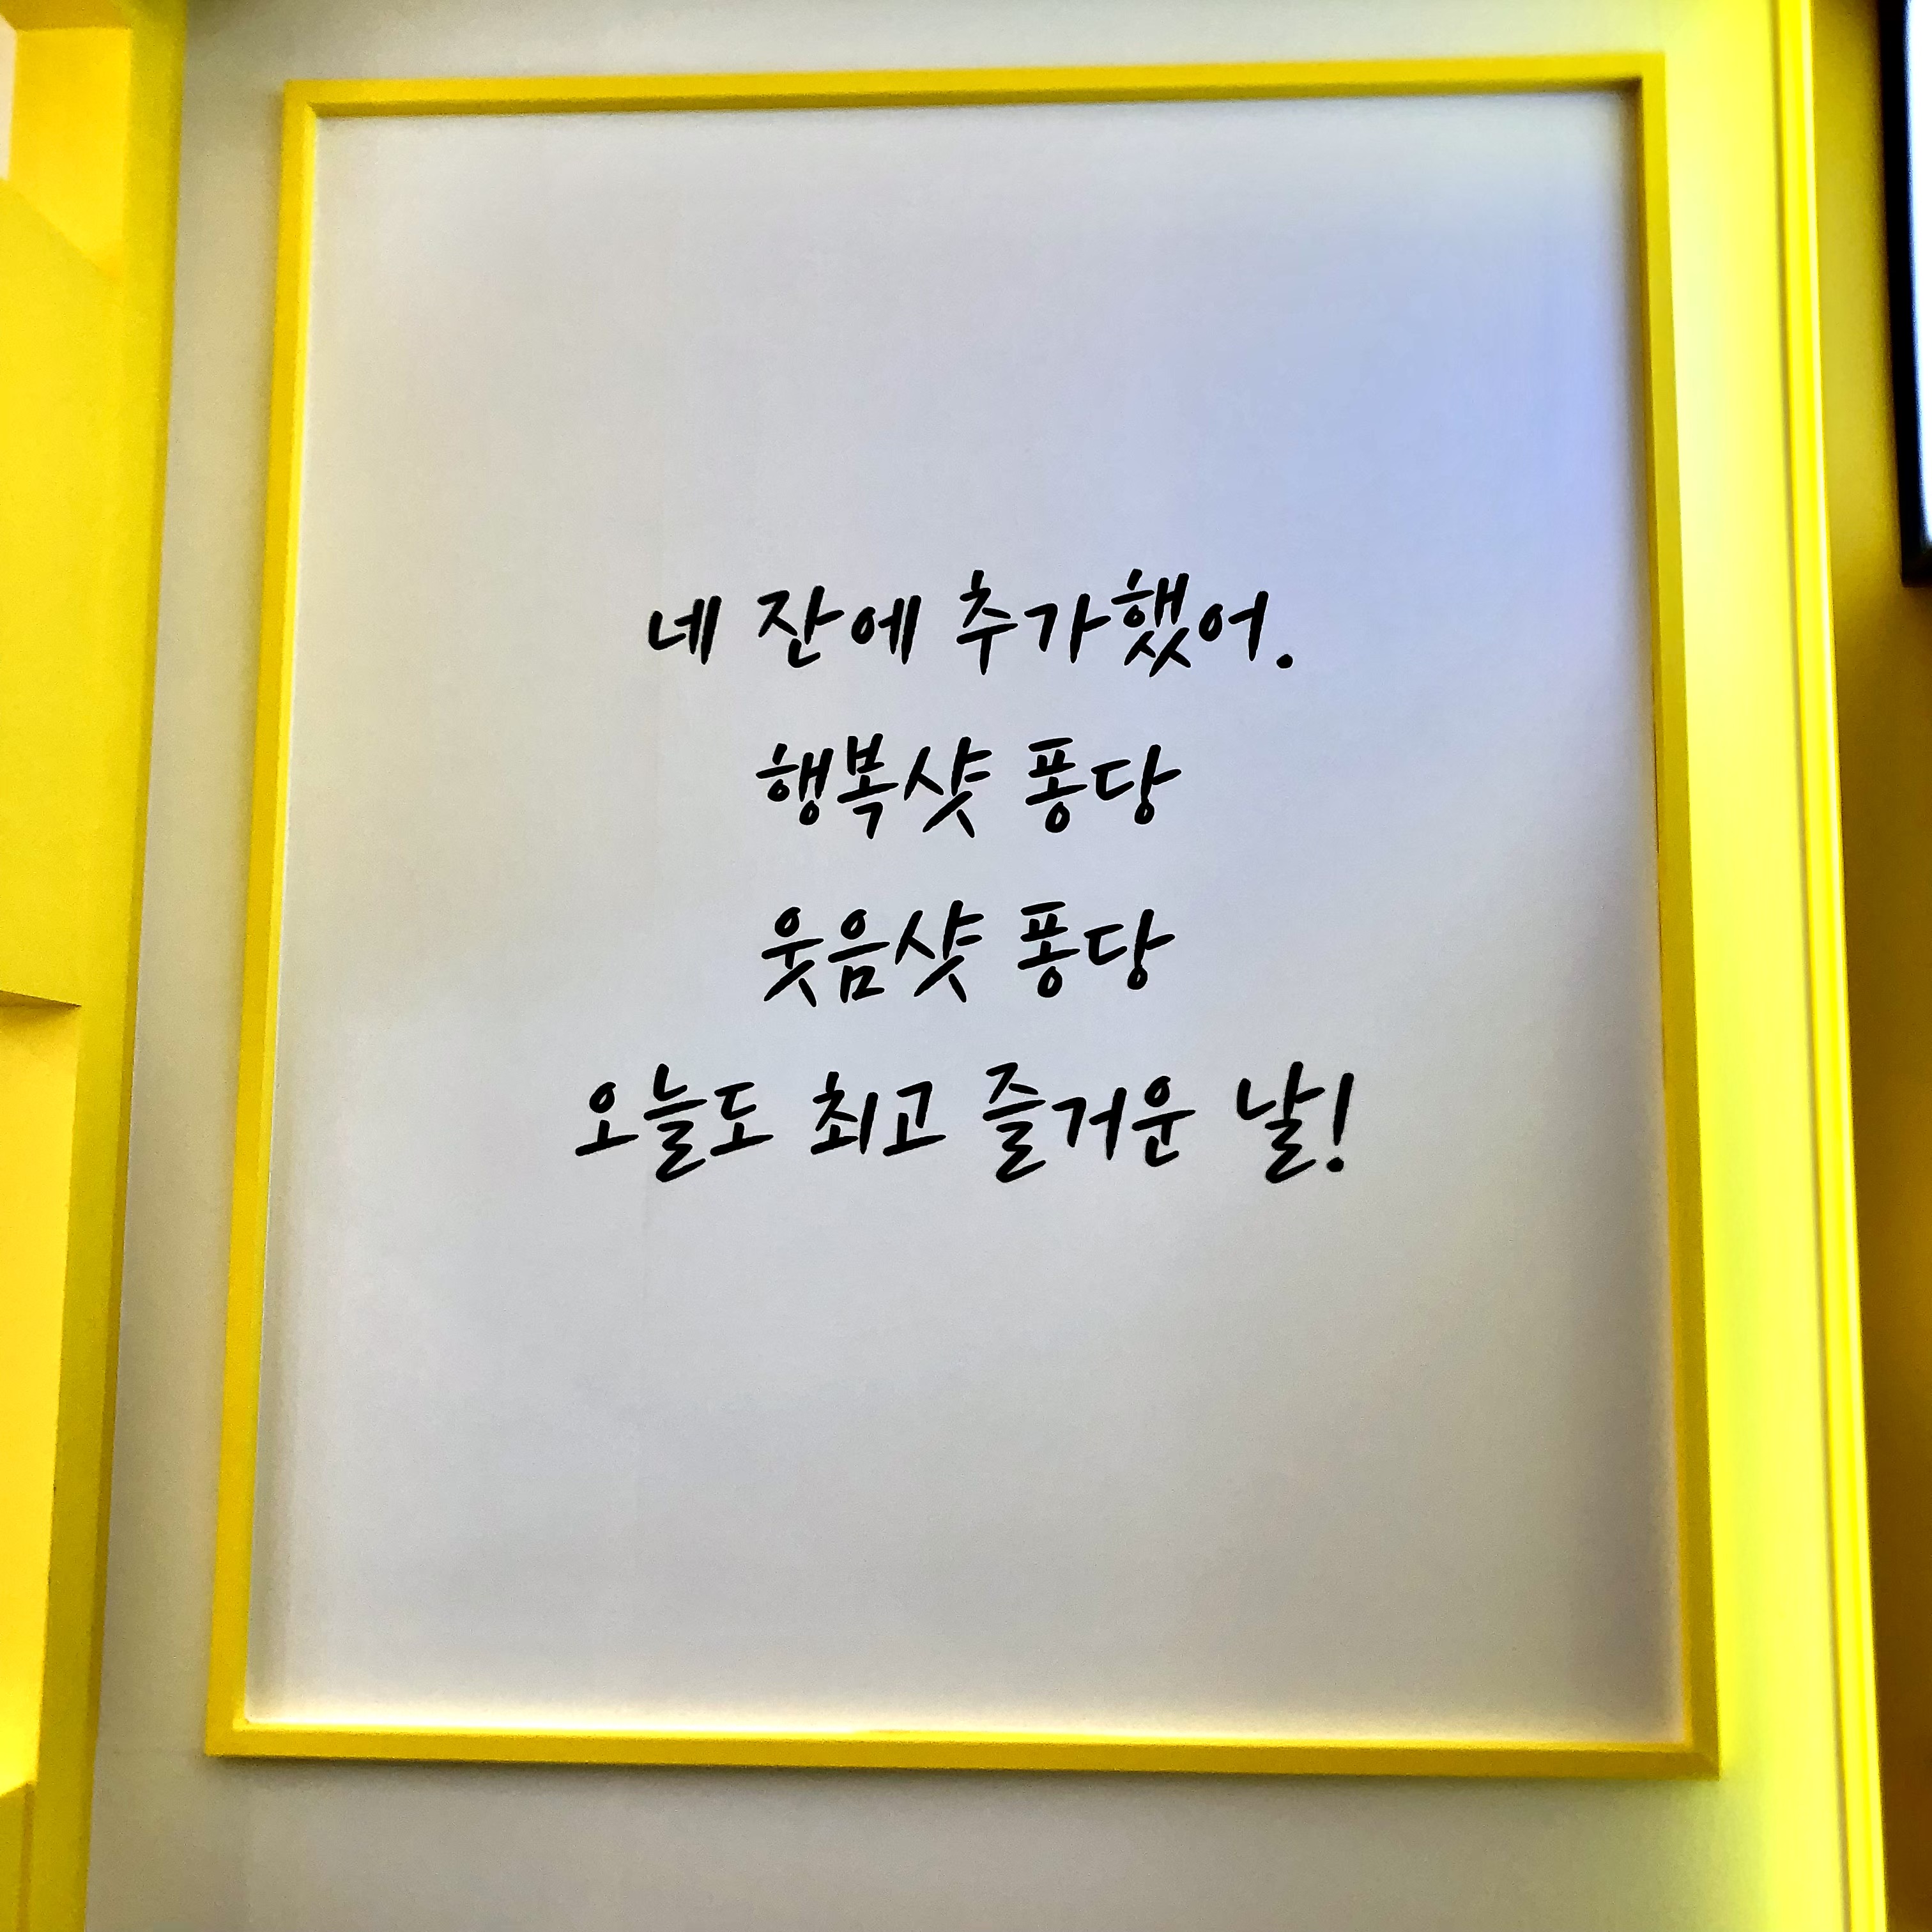 네 잔에 추가했어.
행복샷 퐁당
웃음샷 퐁당
오늘도 최고 즐거운 날!